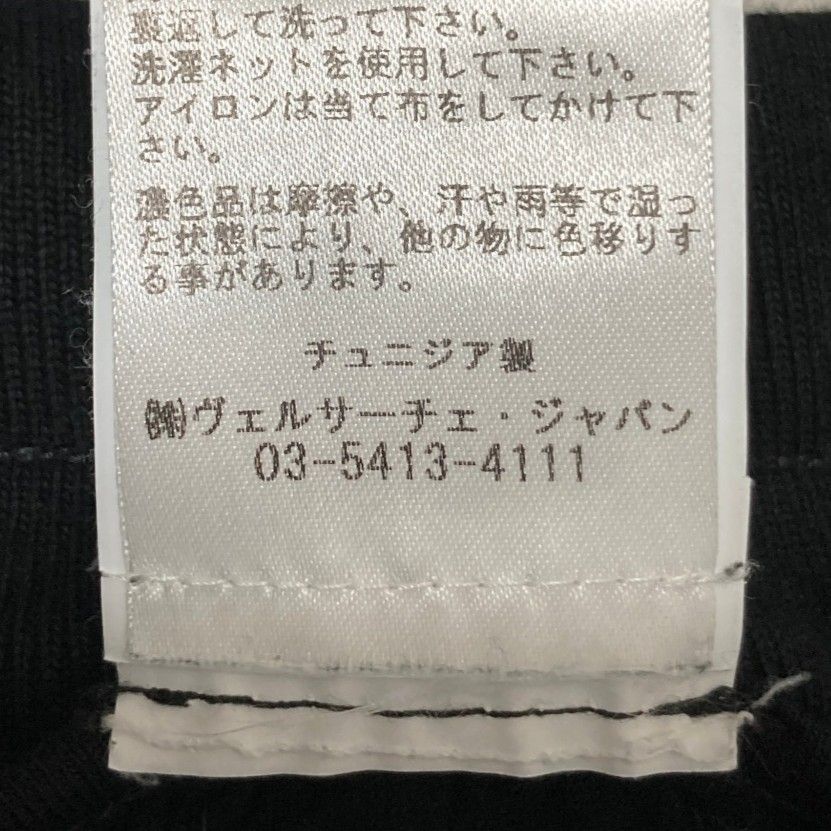 裏返して洗って下さい。
洗濯ネットを使用して下さい。
アイロンは当て布をしてかけて下
さい。
濃色品は摩擦や、汗や雨等で湿っ
た状態により、他の物に色移りす
る事があります。
チュニジア製
㈱ヴェルサーチェ・ジャパン
03-5413-4111